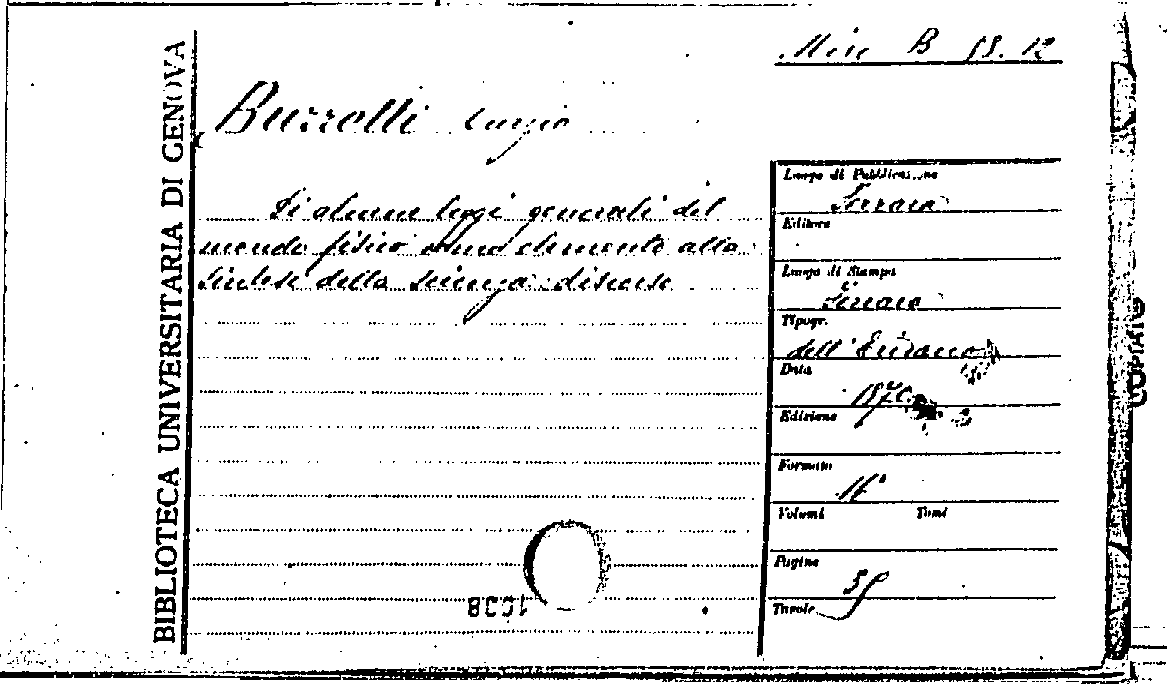 BIBLIOTECA UNIVERSITARIA DI GENOVA
Misc B 13. 12
Buzzetti Curzio
Di alcune leggi generali del
mondo fisico come elemento alla
sintesi della scienza: discorso
Luogo di Pubblicazione
Ferrara
Editore
Luogo di Stampa
Ferrara
Tipogr.
dell' Eridano
Data
1870
Edizione
Formato
16°
Volumi Tomi
Pagine
Tavole
COPIATO